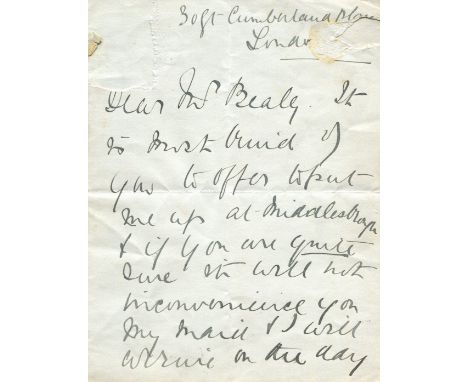 30 Gt Cumberland Place
London
Dear Mrs Bealey. It
is most kind of
you to offer to put
me up at Middlesbrough
& if you are quite
sure it will not
inconvenience you
my maid & I will
arrive on the day